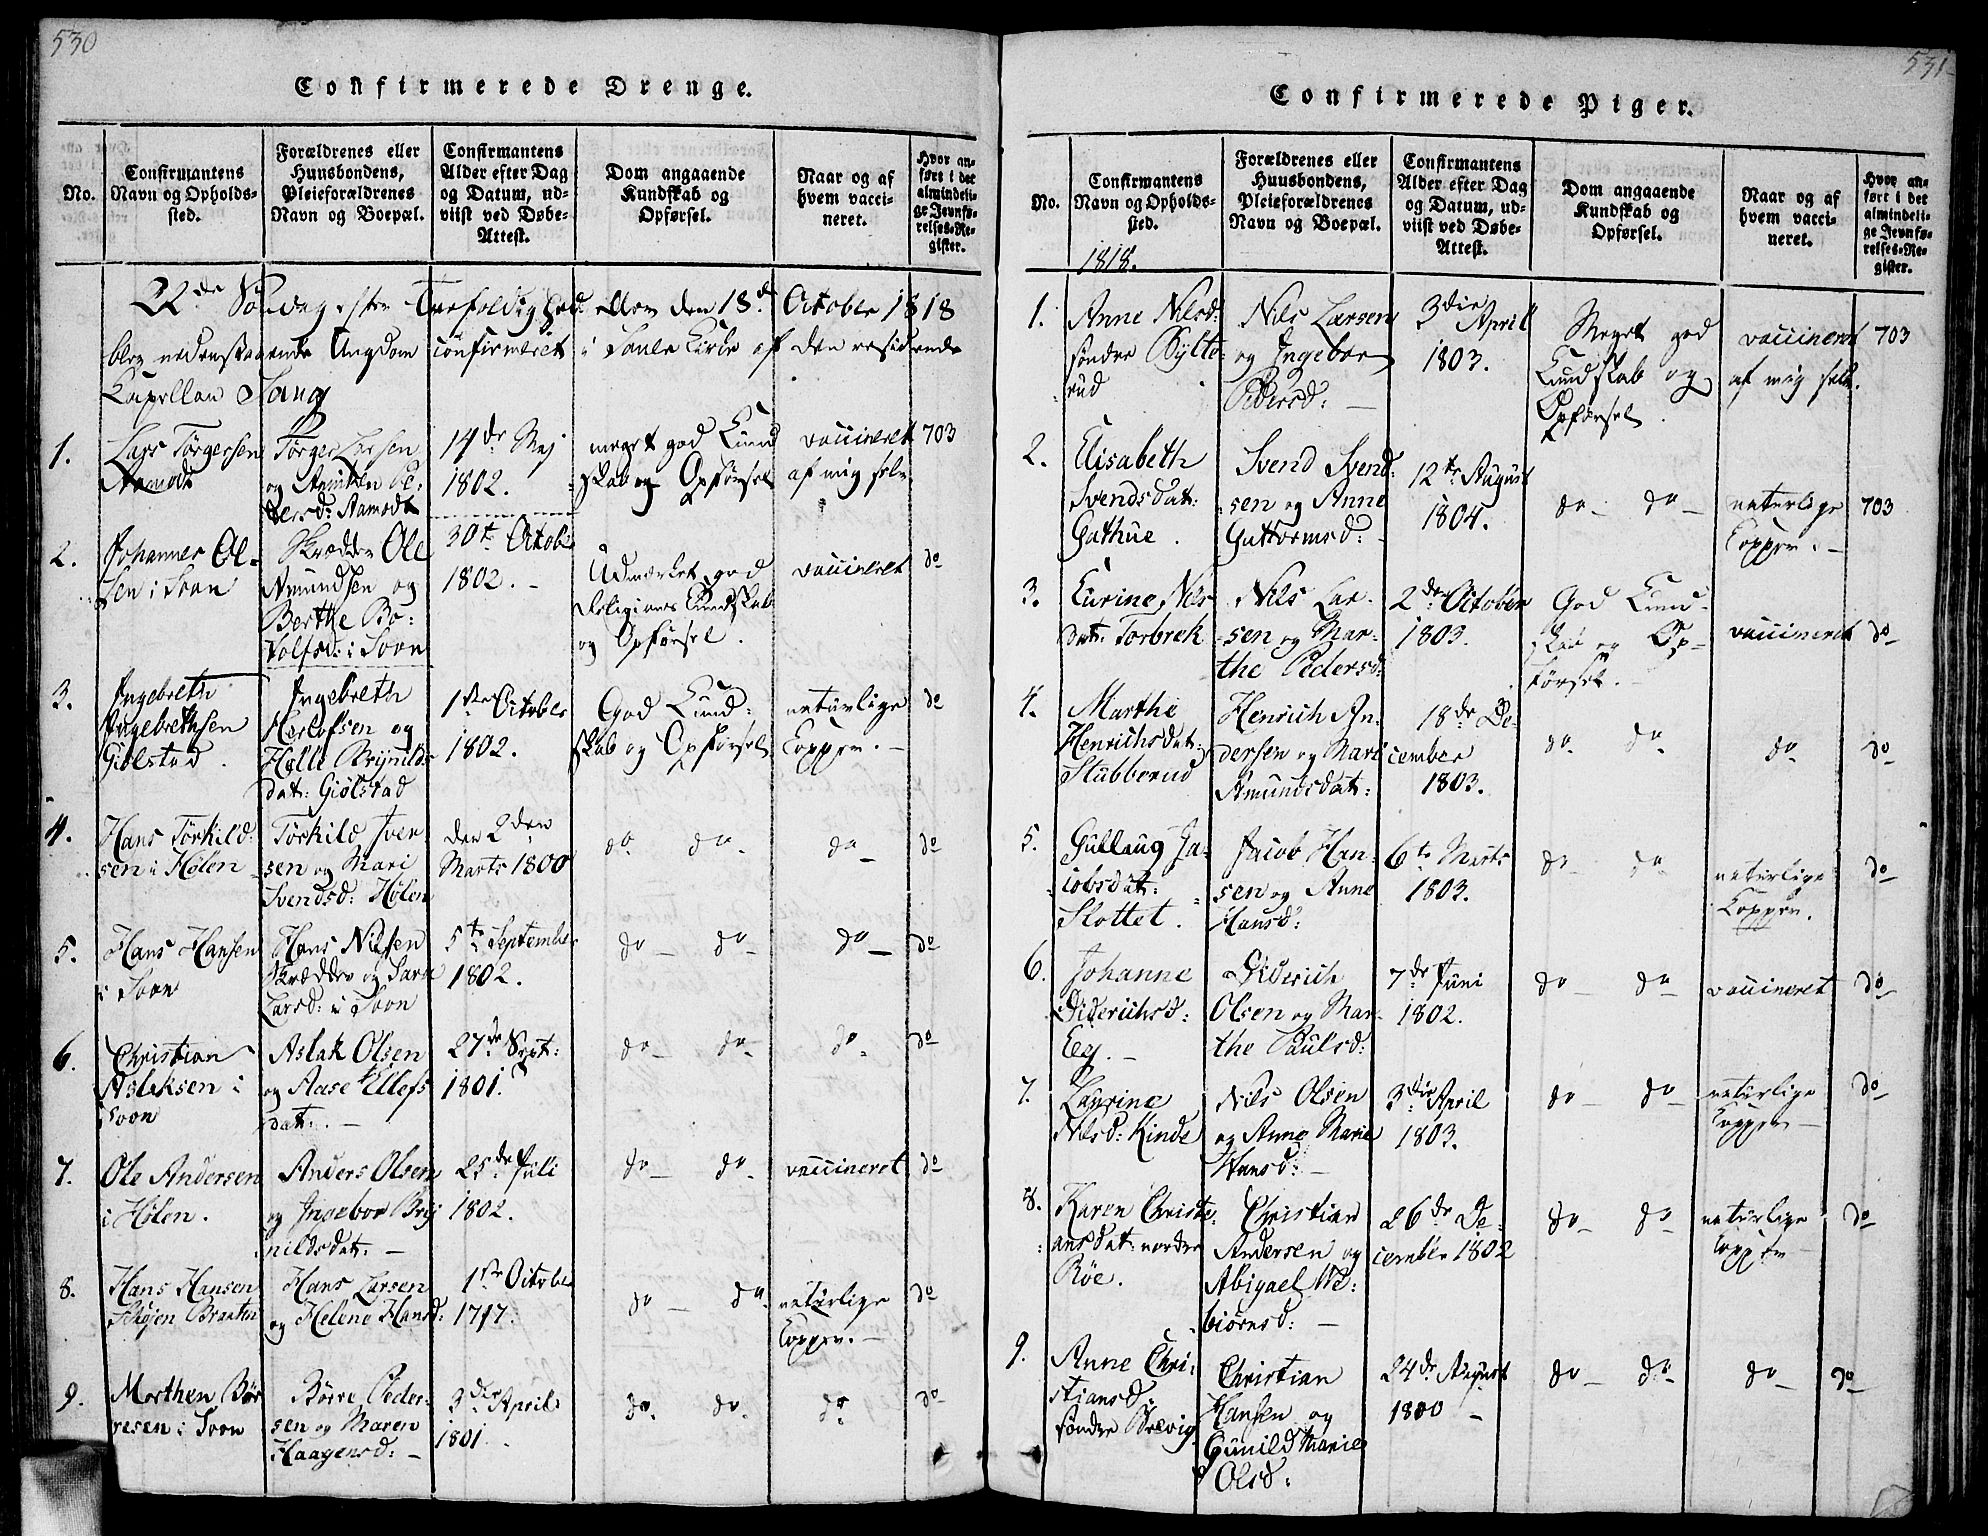 530
Confirmerede Drenge.
No.
Confirmantens
Navn og Opholds-
sted.
Forældrenes eller
Huusbondens,
Pleieforældrenes
Navn og Boepæl.
Confirmantens
Alder efter Dag
og Datum, ud-
viist ved Døbe-
Attest.
Dom angaaende
Kundskab og
Opførsel.
Naar og af
hvem vacci-
neret.
Hvor an-
ført i det
almindeli-
ge Jevnfø-
relses-Re-
gister.
22de Søndag efter Trefoldighed eller den 18d October 1818
blev nedenstaaende Ungdom confirmeret i Kirke af den residerende
Capellan Lang
1.
Lars Törgersen
Aamodt
Törger Larsen
og Pe-
dersd: Aamodt
14de Maj
1802.
meget god Kund
skab og Opförsel
vaccineret
af mig selv.
703
2.
Johannes Ol-
sen i Soon
Skrædder Ole
Amundsen og
Berthe Bo-
tolfsd: i Soon
30te Octob:
1802. -
Udmærket god
Religions Kundskab
og Opförsel.
vaccineret
do
3.
Ingebreth
Ingebrethsen
Giölstad.
Ingebreth
Herlofsen og
Helle Brynilds
dat: Giölstad
1ste October
1802.
God Kund-
skab og Opförsel
naturlige
Kopper. -
do
4.
Hans Törkild-
sen i Hølen
Törkild Iver-
sen og Mari
Svendsd: Hølen
den 2den
Marts 1800
do do
do -
do
5.
Hans Hansen
i Soon
Hans Nilsen
Skrædder og Sara
Larsd: i Soon
5te September
1802.
do do
do -
do
6.
Christian
Aslaksen i
Soon
Aslak Olsen
og Aase Ellefs
dat: -
27de Sept:
1801.
do - do -
do -
do
7.
Ole Andersen
i Hølen.
Anders Olsen
og Ingebor Bry
nildsdat: -
25de Juli
1802.
do - do -
vaccineret
do
8.
Hans Hansen
Skøjen Braaten
Hans Larsen
og Helene Hansd:
1ste October
1717.
do - do
naturlige
Kopper. -
do
9.
Morthen Bör
resen i Soon
Börre Peder-
sen og Maren
Haagensd: -
3die April
1801.
do. do.
do
do
531
Confirmerede Piger.
No.
Confirmantens
Navn og Opholds-
sted.
1818.
Forældrenes eller
Huusbondens,
Pleieforældrenes
Navn og Boepæl.
Confirmantens
Alder efter Dag
og Datum, ud-
viist ved Døbe-
Attest.
Dom angaaende
Kundskab og
Opførsel.
Naar og af
hvem vacci-
neret.
Hvor an-
ført i det
almindeli-
ge Jevnfø-
relses-Re-
gister.
1.
Anne Nilsd:
söndre Bylte-
rud
Nils Larsen
og Ingebor
Pedersd: -
3die April
1803.
Meget god
Kundskab og
Opförsel.
vaccineret
af mig selv.
703
2.
Elisabeth
Svendsdat:
Gathue.
Svend Svend-
sen og Anne
Guttormsd: -
12te August
1804.
do - do -
naturlige
Kopper. -
703
3.
Karine Nils
dat: Torbrek
Nils Lar-
sen og Mar-
the Pedersd:
2den October
1803.
God Kund-
skab og Op-
försel. -
vaccineret
do
4.
Marthe
Henrichsdat:
Stubberud
Henrich An-
dersen og Mari
Amundsdat:
18de De-
cember
1803.
do do
do
do
5.
Gullaug Ja-
cobsdat:
Slottet.
Jacob Han-
sen og Anne
Hansd:
6te Marts
1803.
do - do
naturlige
Kopper.
do
6.
Johanne
Diderichsd:
Eeg. -
Diderich
Olsen og Mar-
the Paulsd:
7de Juni
1802.
do do -
vaccineret
do
7.
Laurine
Nilsd: Kinde
Nils Olsen
og Anne Marie
Hansd: -
3die April
1803.
do - do -
naturlige
Kopper -
do
8.
Karen Christi-
ansdat: nordre
Röe.
Christian
Andersen og
Abigael We-
biörnsd: -
26de De-
cember 1802
do - do -
naturlige
Kopper -
do
9.
Anne Chri-
stiansd:
söndre Brevig
Christian
Hansen og
Gunild Marie
Olsd:
24de August
1800 -
do - do -
do -
do